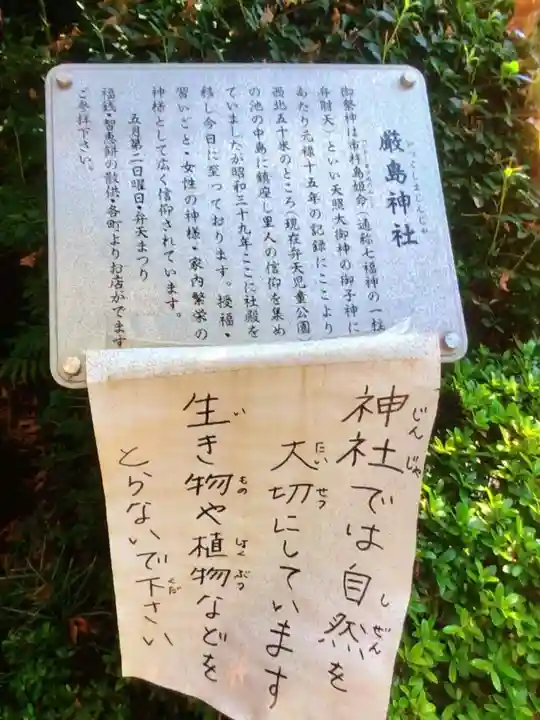 厳島神社
いつくしまじんじゃ
御祭神は市杵島姫命（通称七福神の一柱
弁財天）といい天照大御神の御子神に
あたり元禄十五年の記録にここより
西北五十米のところ（現在弁天児童公園）
の池の中島に鎮座し里人の信仰を集め
ていましたが昭和三十九年ここに社殿を
移し今日に至っております。授福・
習いごと・女性の神様・家内繁栄の
神様として広く信仰されています。
五月第二日曜日・弁天まつり
福銭・智恵餅の散供・各町よりお店がでます
ご参拝下さい。
神社では自然を
じんじゃ しぜん
大切にしています
たいせつ
生き物や植物などを
い もの しょくぶつ
とらないで下さい
くだ